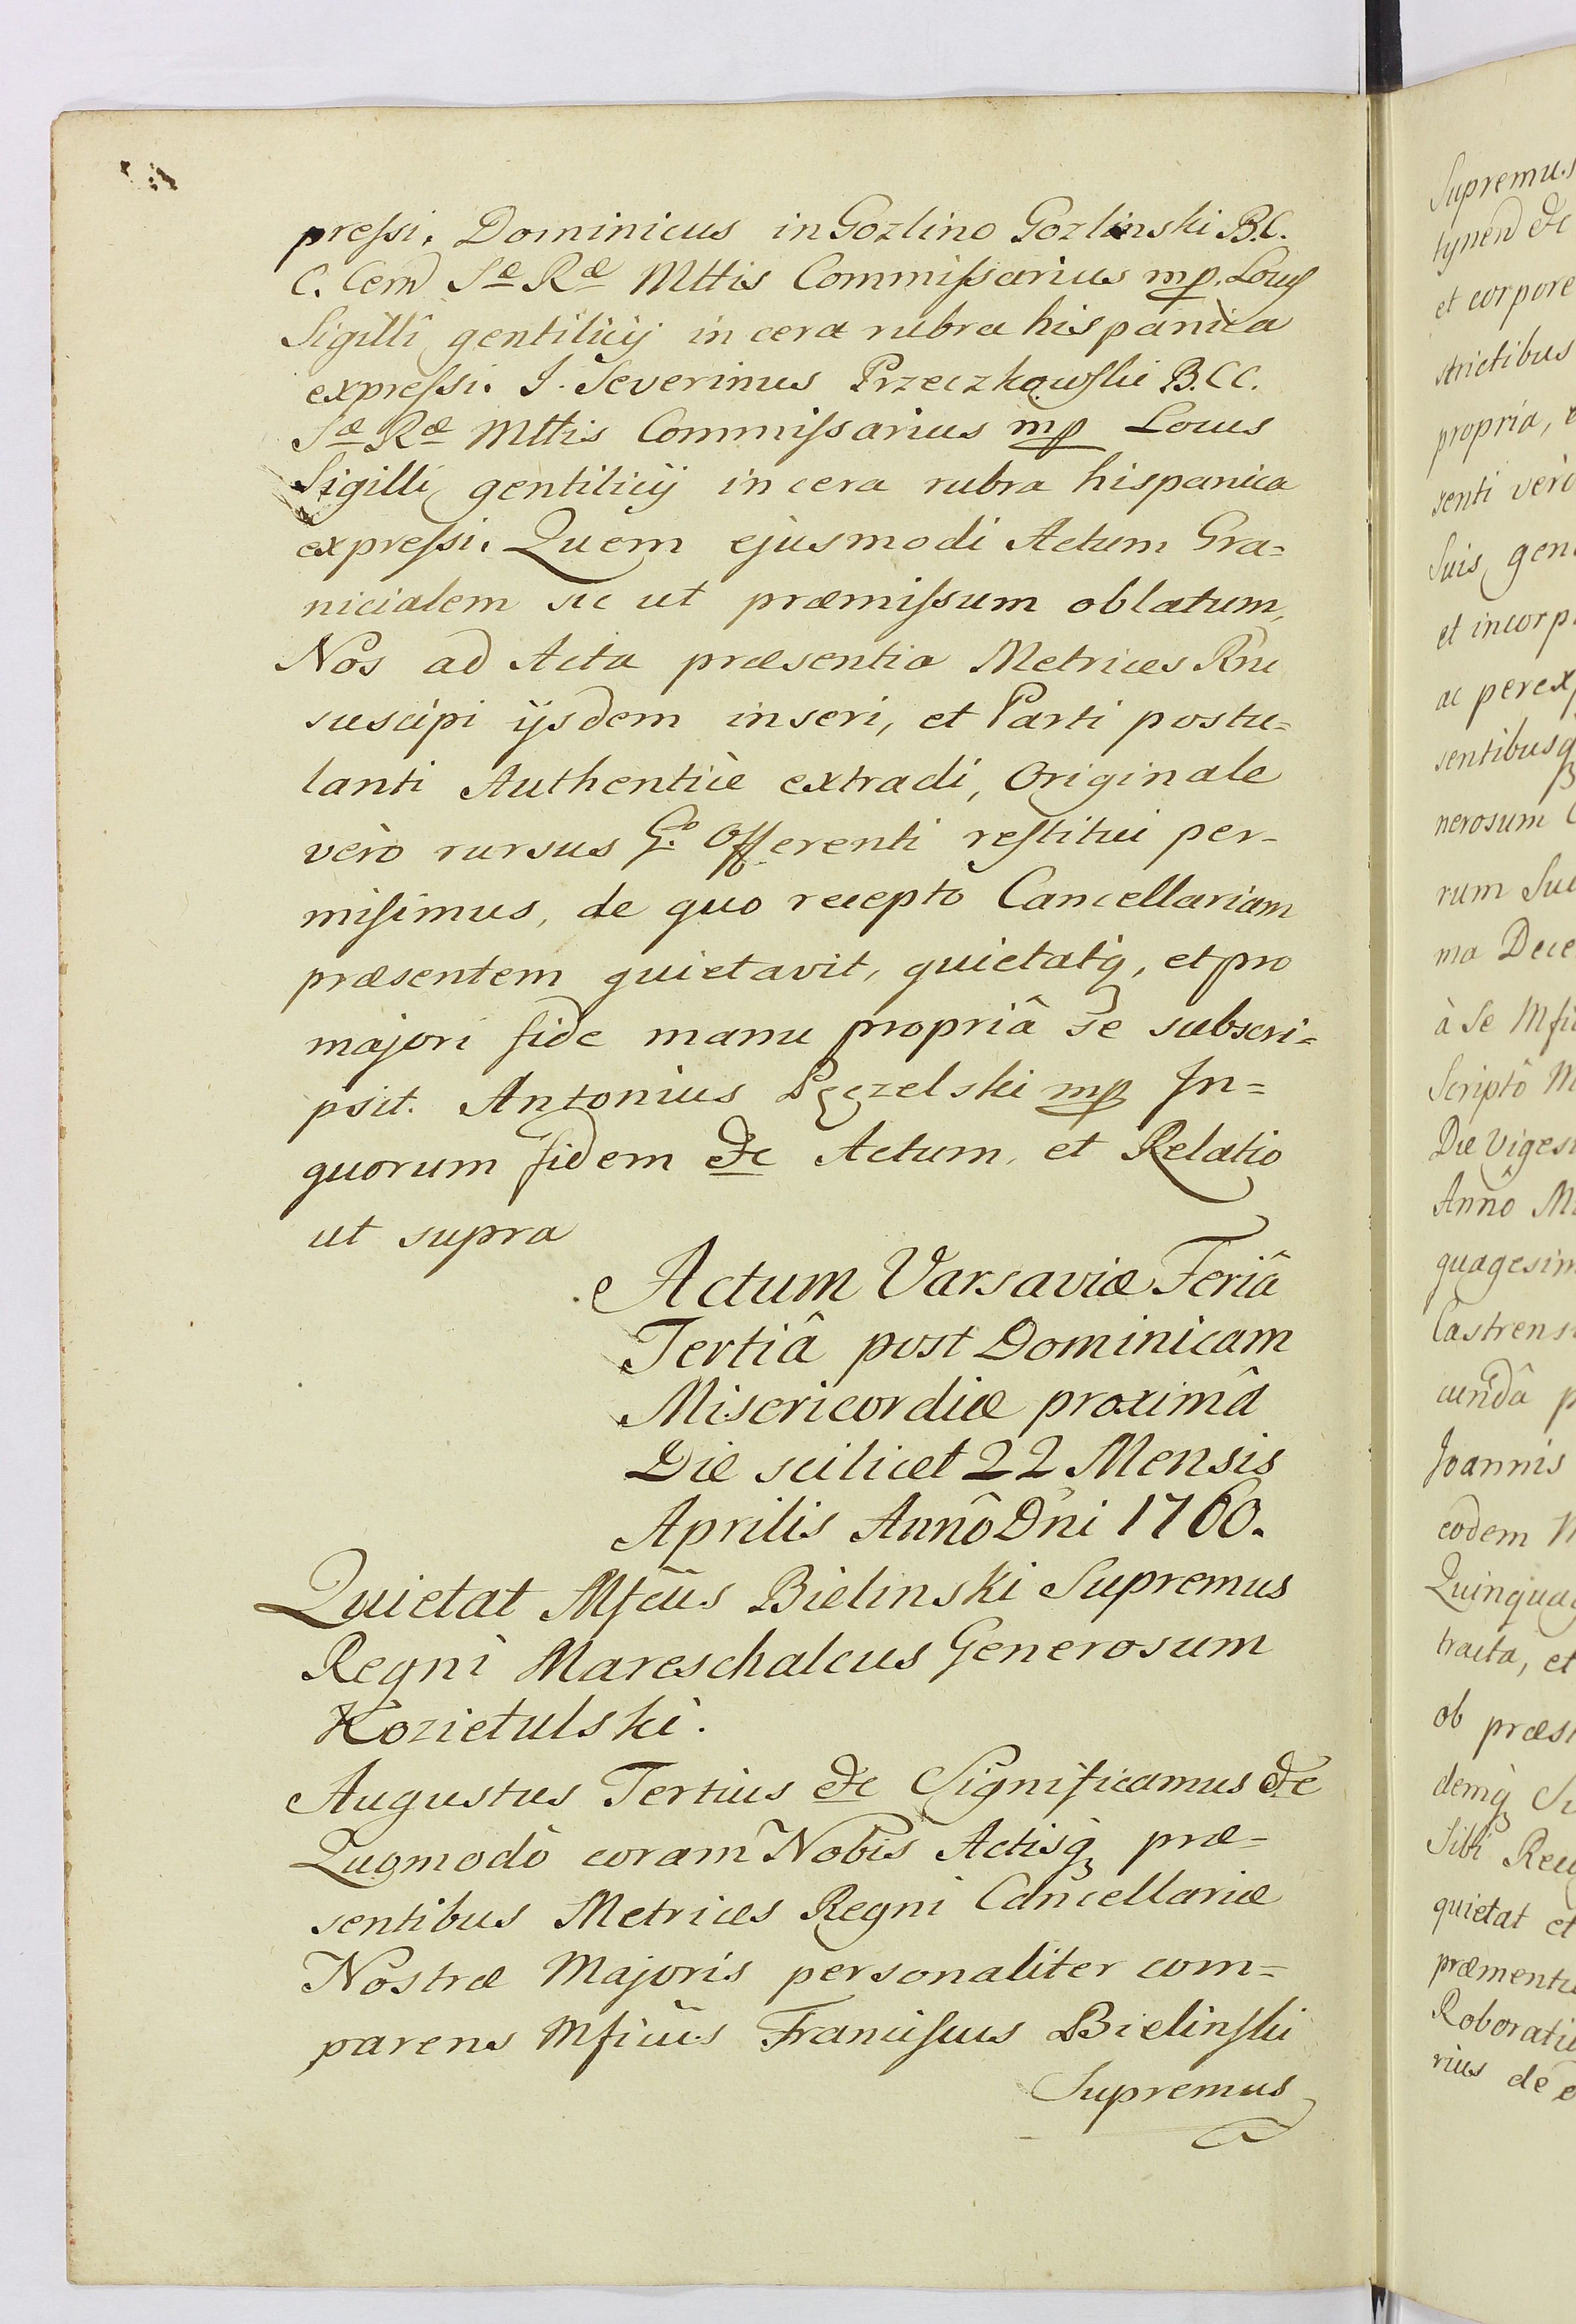 pressi. Dominicus in Gozlino Gozlinski B.C.
C. Cem̄ Sæ Ræ Mttis Commissarius mp. Locus
Sigilli gentilicij in cera rubra hispanica
expressi. J. Severinus Przeczkowski B.CC.
Sæ Ræ Mttis Commissarius mp Locus
Sigilli gentilicij in cera rubra hispanica
expressi. Quem ejusmodi Actum Gra=
nicialem sic ut præmissum oblatum,
Nos ad Acta præsentia Metrices Rni
suscipi ijsdem inseri, et Parti postu=
lanti Authenticè extradi, Originale
verò rursus Go. Offerenti restitui per-
misimus, de quo recepto Cancellariam
præsentem quietavit, quietatq, et pro
majori fide manu propriâ se subscri=
psit. Antonius mp In=
quorum fidem &c Actum, et Relatio
ut supra
Actum Varsaviæ Feriâ
Tertiâ post Dominicam
Misericordiæ proximâ
Die scilicet 22 Mensis
Aprilis Annô Dni 1760.
Quietat Mfcus Bielinski Supremus
Regni Mareschalcus Generosum
Kozietulski.
Augustus Tertius &c Significamus &c
Quomodò coram Nobis Actisq præ-
sentibus Metrices Regni Cancellariæ
Nostræ Majoris personaliter com=
parens Mficus Franciscus Bielinski
Supremus
Supremus
et corpore
propria,
senti verò
Suis gen
et incorp
ac perex
sentibusq
nerosum
rum Su
ma Dece
à Se Mfi
Scriptô M
Die Viges
Annô M
quagesim
Castrens
cundâ p
Joannis
eodem
Quinquag
tracta, et
ob præs
demq Su
Sibi Rec
quietat et
præmenti
Roborati
rius de e